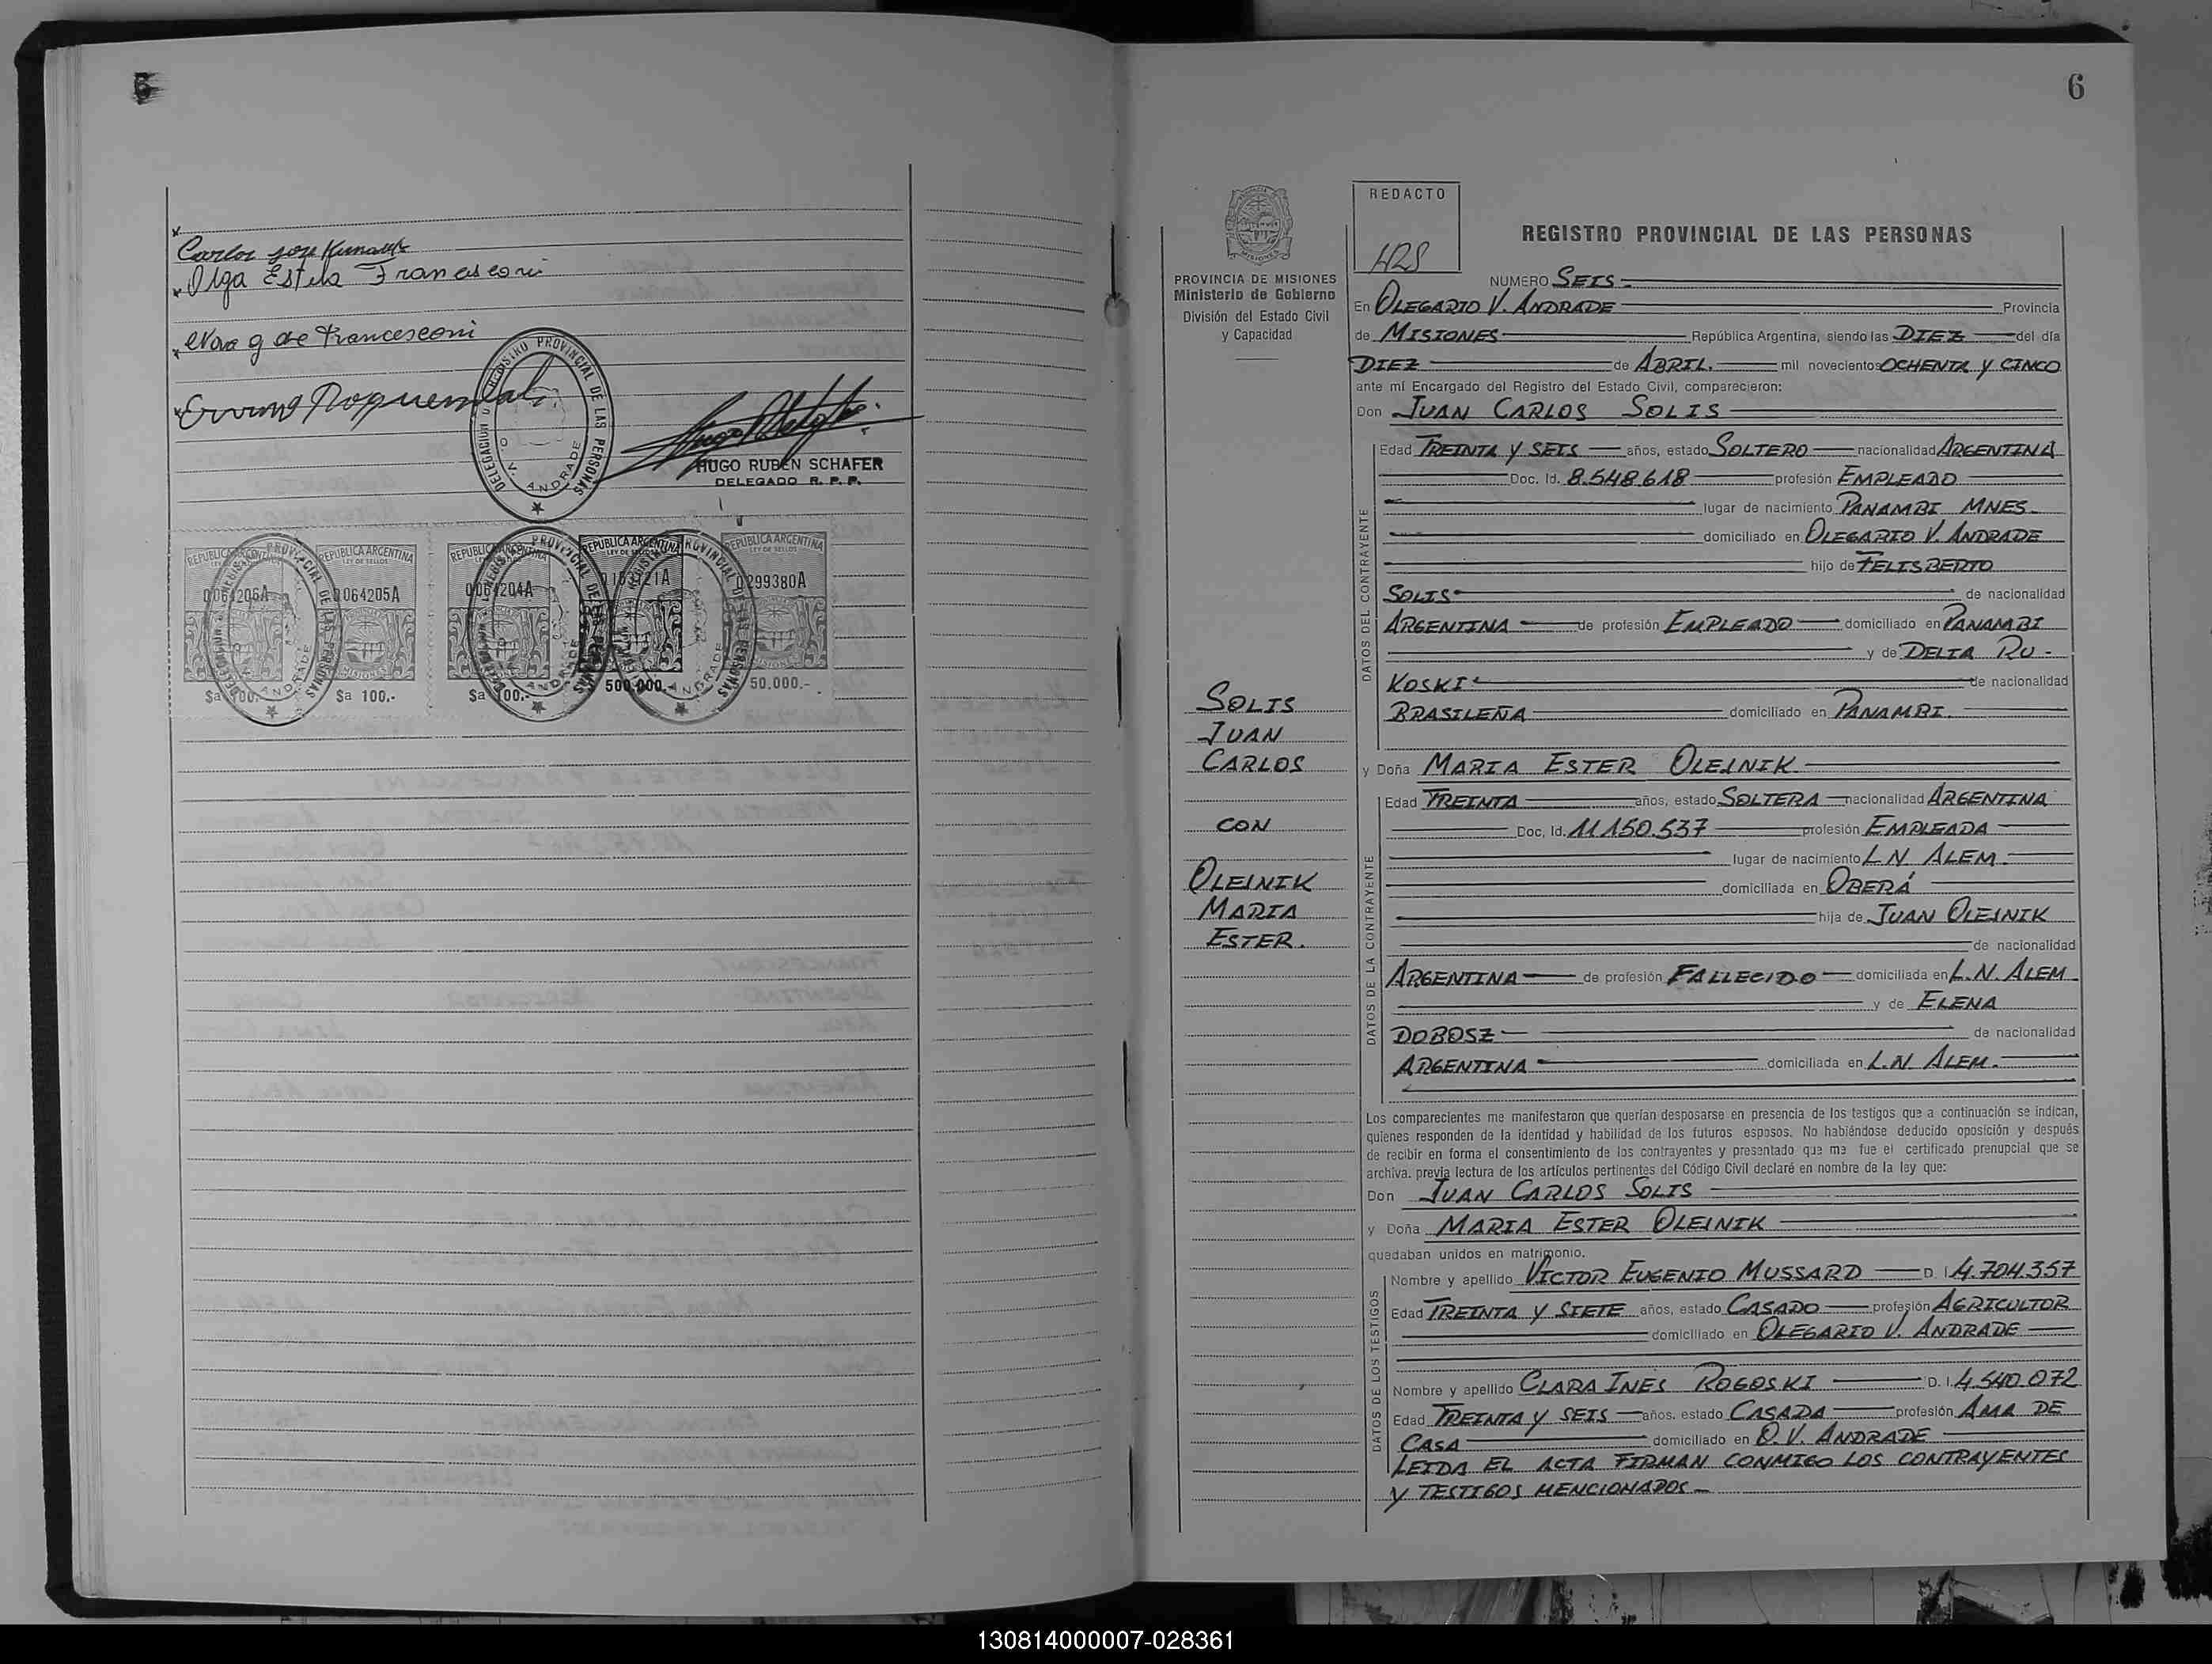 Carlos José
Olga Estela Francesconi
Nora g de Francesconi
DELEGACION REGISTRO PROVINCIAL DE LAS PERSONAS
O. V. ANDRADE
HUGO RUBEN SCHAFER
DELEGADO R. P. P.
REPUBLICA ARGENTINA REPUBLICA ARGENTINA REPUBLICA ARGENTINA REPUBLICA ARGENTINA REPUBLICA ARGENTINA
LEY DE SELLOS
0064205A 0064204A 0299380A
$a 100.- $a 100.- $a 100.- 500.000.- 50.000.-
6
PROVINCIA DE MISIONES
Ministerio de Gobierno
División del Estado Civil
y Capacidad
SOLIS
JUAN
CARLOS
CON
OLEINIK
MARIA
ESTER.
REDACTO
HRS
REGISTRO PROVINCIAL DE LAS PERSONAS
NUMERO SEIS-
En OLEGARIO V. ANDRADE Provincia
de MISIONES República Argentina, siendo las DIEZ del día
DIEZ de ABRIL. mil novecientos OCHENTA Y CINCO
ante mí Encargado del Registro del Estado Civil, comparecieron:
Don JUAN CARLOS SOLIS
DATOS DEL CONTRAYENTE
Edad TREINTA Y SEIS años, estado SOLTERO nacionalidad ARGENTINA
Doc. Id. 8.548.618 profesión EMPLEADO
lugar de nacimiento PANAMBI MNES-
domiciliado en OLEGARIO V. ANDRADE
hijo de FELISBERTO
SOLIS de nacionalidad
ARGENTINA de profesión EMPLEADO domiciliado en PANAMBI
y de DELIA RU-
KOSKI de nacionalidad
BRASILEÑA domiciliado en PANAMBI.
y Doña MARIA ESTER OLEINIK
DATOS DE LA CONTRAYENTE
Edad TREINTA años, estado SOLTERA nacionalidad ARGENTINA
Doc. Id. 11.150.537 profesión EMPLEADA
lugar de nacimiento L N ALEM.
domiciliada en OBERÁ
hija de JUAN OLEINIK
de nacionalidad
ARGENTINA de profesión FALLECIDO domiciliada en L.N. ALEM
y de ELENA
DOBOSZ de nacionalidad
ARGENTINA domiciliada en L.N. ALEM.
Los comparecientes me manifestaron que querían desposarse en presencia de los testigos que a continuación se indican,
quienes responden de la identidad y habilidad de los futuros esposos. No habiéndose deducido oposición y después
de recibir en forma el consentimiento de los contrayentes y presentado que me fue el certificado prenupcial que se
archiva. previa lectura de los artículos pertinentes del Código Civil declaré en nombre de la ley que:
Don JUAN CARLOS SOLIS
y Doña MARIA ESTER OLEINIK
quedaban unidos en matrimonio.
DATOS DE LOS TESTIGOS
Nombre y apellido VICTOR EUGENIO MUSSARD D. I. 4.704.357
Edad TREINTA Y SIETE años, estado CASADO profesión AGRICULTOR
domiciliado en OLEGARIO V. ANDRADE
Nombre y apellido CLARA INES ROGOSKI D. I. 4.540.072
Edad TREINTA Y SEIS años. estado CASADA profesión AMA DE
CASA domiciliado en O.V. ANDRADE
LEIDA EL ACTA FIRMAN CONMIGO LOS CONTRAYENTES
Y TESTIGOS MENCIONADOS-
130814000007-028361